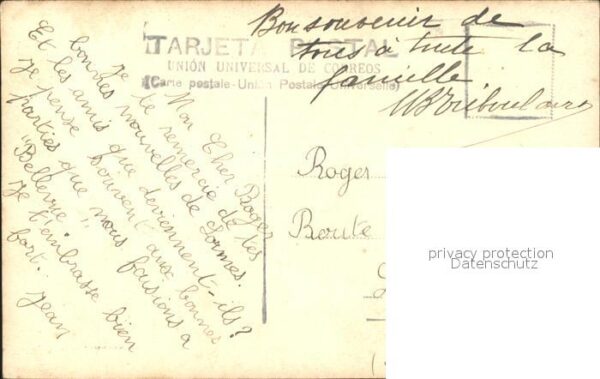 Bon souvenir de
tous à toute la
famille
TARJETA POSTAL
UNIÓN UNIVERSAL DE CORREOS
(Carte postale-Union Postale Universelle)
Mon Cher Roger
je te remercie de tes
bonnes nouvelles de Lormes.
Et les amis que deviennent-ils?
Je pense souvent aux bonnes
parties que nous faisions à
"Bellevue"
Je t'embrasse bien
fort.. Jean
Roger
Route
privacy protection
Datenschutz